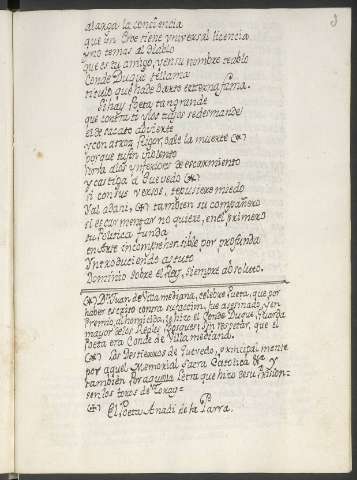 alarga la conciencia
que un Dios tiene universal licencia
y no temas al Diablo
que es tu amigo, y en su nombre
Conde Duque te llama
titulo que ha de darte eterna fama.
Si hay Poeta tan grande
que contra ti y los tuyos se desmande
el desacato advierte
y con atroz rigor, dale la muerte (+)
porque tu fin violento
sirva a los ynferiores de escarmiento
y castiga a Quevedo (+)
si con sus versos, te pusiere miedo
y al adani, (+) tambien su compañero
si escarmentar no quiere, en el primero
tu Politica funda
en Arte incomprehensible por profunda
Yntroduciendo astuto
Dominio sobre el Rey, siempre absoluto.
(+) Dn Juan de Villamediana, celebre Poeta, que por
haver escrito contra su faccion, fue asesinado, y en
premio, al homicida, le hizo el Conde Duque, Guarda
mayor de los Reales Bosques; sin respetar, que el
Poeta era Conde de Villamediana.
(+) Los Destierros de Quevedo, principalmente
por aquel Memorial Sacra Catolica &a y
tambien por aquella Letra que hizo de su Prision
en los toros de
(+) El Poeta Anadi de la Parra.